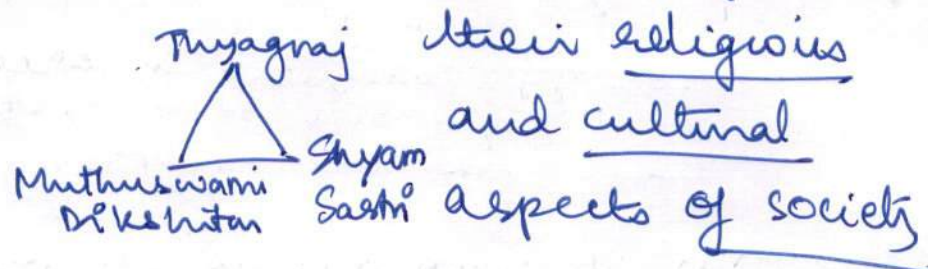 Thyagraj
Muthuswami
Dikshitar
Shyam
Sastri
their religious
and cultural
aspects of society